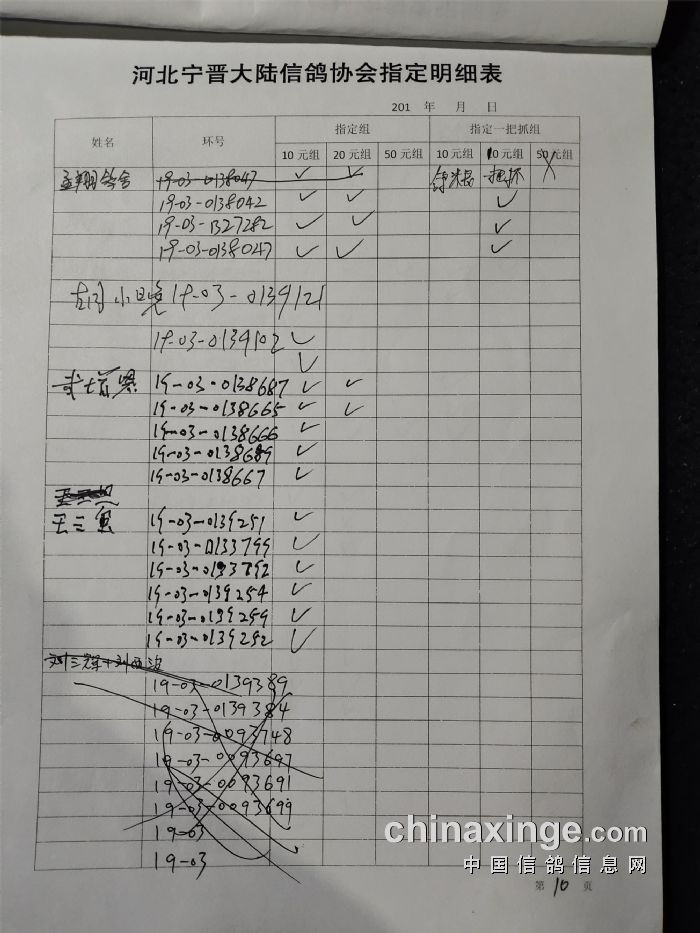 河北宁晋大陆信鸽协会指定明细表
201 年 月 日
姓名 环号 指定组 指定一把抓组
10元组 20元组 50元组 10元组 10元组 50元组
孟翔鸽舍 19-03-0138047 ✓ ✓
19-03-0138042 ✓ ✓ ✓
19-03-1327282 ✓ ✓ ✓
19-03-0138047 ✓ ✓ ✓
19-03-0139121
19-03-0139102 ✓
✓
19-03-0138687 ✓ ✓
19-03-0138665 ✓ ✓
19-03-0138666 ✓
19-03-0138689 ✓
19-03-0138667 ✓
王三
19-03-0139251 ✓
19-03-0133799 ✓
19-03-0133792 ✓
19-03-0139254 ✓
19-03-0139259 ✓
19-03-0139252 ✓
19-03-0139389
19-03-0139384
19-03-0093748
19-03-0093697
19-03-0093691
19-03-0093699
19-03
19-03
chinaxinge.com
中国信鸽信息网
第 10 页